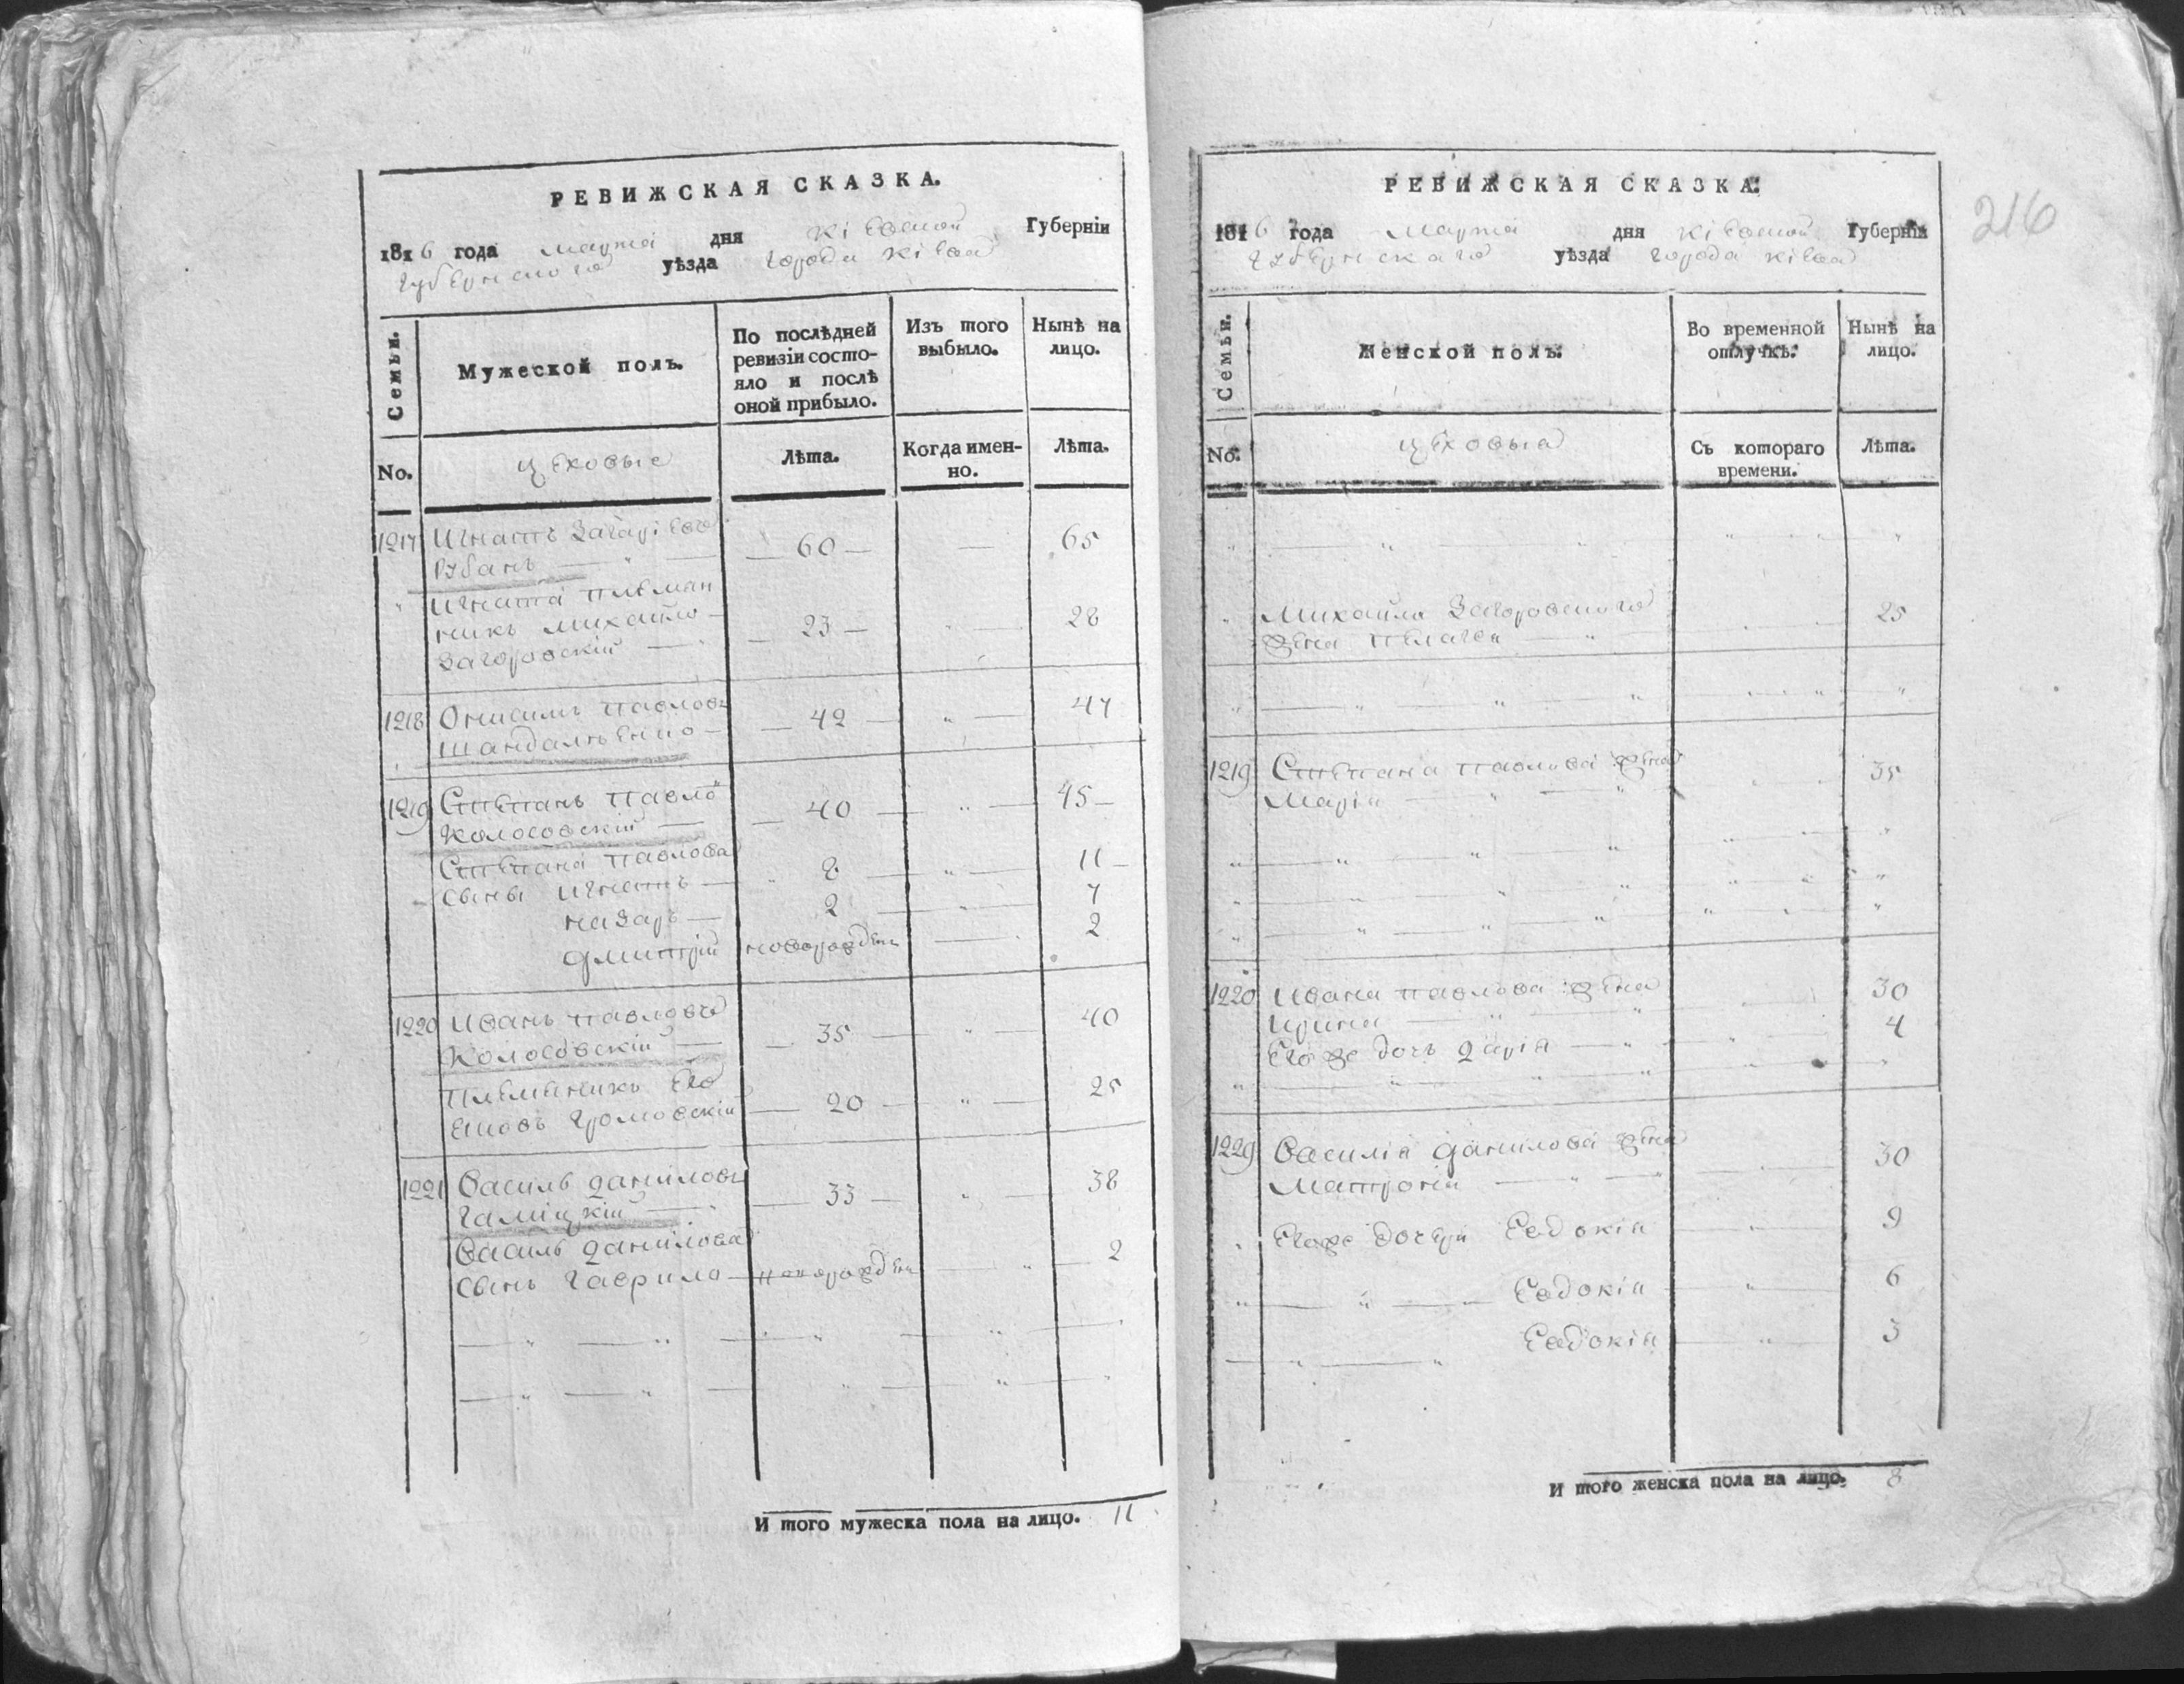 РЕВИЖСКАЯ СКАЗКА.
1816 года марта дня Кіевской Губерніи
Губернского уѣзда города Кіева
Семьи.
Мужеской полъ.
По послѣдней ревизіи состо-
яло и послѣ
оной прибыло.
Изъ того
выбыло.
Нынѣ на
лицо.
No.
цеховые
Лѣта.
Когда имен-
но.
Лѣта.
1217 Игнатъ Захаріевъ
Рубанъ — 60 — 65
Игната племян
никъ Михайло
Загоровскій — 23 — 28
1218 Онисимъ Павловъ
— 42 — 47
1219 Степанъ Павло
Колосовскій — 40 — 45
Степана Павлова
сыны Игнатъ — 8 — 11
Назаръ — 2 — 7
Дмитрій новорожден 2
1220 Иванъ Павловъ
Колосовскій — 35 — 40
Племенникъ Его
Яковъ Громовскій — 20 — 25
1221 Василь Даниловъ
Галицкій — 33 — 38
Василь Данилова
сынъ Гаврило — новорожден — 2
И того мужеска пола на лицо. 11
216
РЕВИЖСКАЯ СКАЗКА.
1816 года Марта дня Кіевской Губерніи
Губернскаго уѣзда города Кіева
Семьи.
Женской полъ.
Во временной
отлучкѣ.
Нынѣ на
лицо.
No.
цеховыа
Съ котораго
времени.
Лѣта.
Михайла Загоровского
жена Пелагея — 25
1219 Степана Павлова жена
Марія — 35
1220 Ивана Павлова жена
Ирина — 30
Его же дочь Дарія — 4
1229 Василія Данилова жена
Матрона — 30
Егоже дочери Евдокія 9
Евдокія 6
Евдокія 3
И того женска пола на лицо. 8